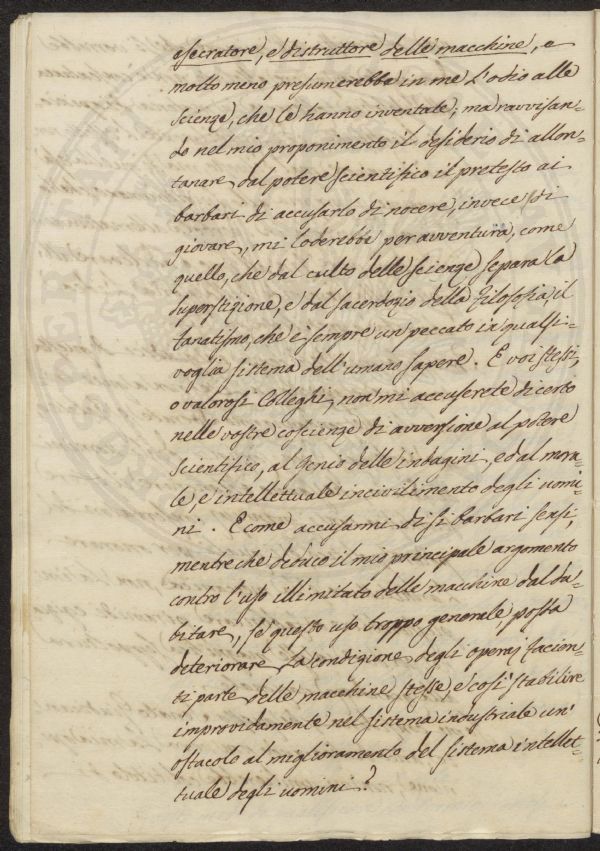 esecratore, e distruttore delle macchine, e
molto meno presumerebbe in me l'odio alle
scienze, che le hanno inventate; ma ravvisan-
do nel mio proponimento il desiderio di allon-
tanare dal potere scientifico il pretesto ai
barbari di accusarlo di nocere, invece di
giovare, mi loderebbe per avventura, come
quello, che dal culto delle scienze separa la
superstizione, e dal sacerdozio della filosofia il
fanatismo, che è sempre un peccato in qualsi-
voglia sistema dell'umano sapere. E voi stessi,
o valorosi Colleghi, non mi accuserete di certo
nelle vostre coscienze di avversione al potere
scientifico, al Genio delle indagini, ed al mora-
le, e intellettuale incivilimento degli uomi-
ni. E come accusarmi di sì barbari sensi,
mentre che deduco il mio principale argomento
contro l'uso illimitato delle macchine dal du-
bitare, se questo uso troppo generale possa
deteriorare la condizione degli operaj facien-
ti parte delle macchine stesse, e così stabilire
improvidamente nel sistema industriale un'
ostacolo al miglioramento del sistema intellet-
tuale degli uomini?